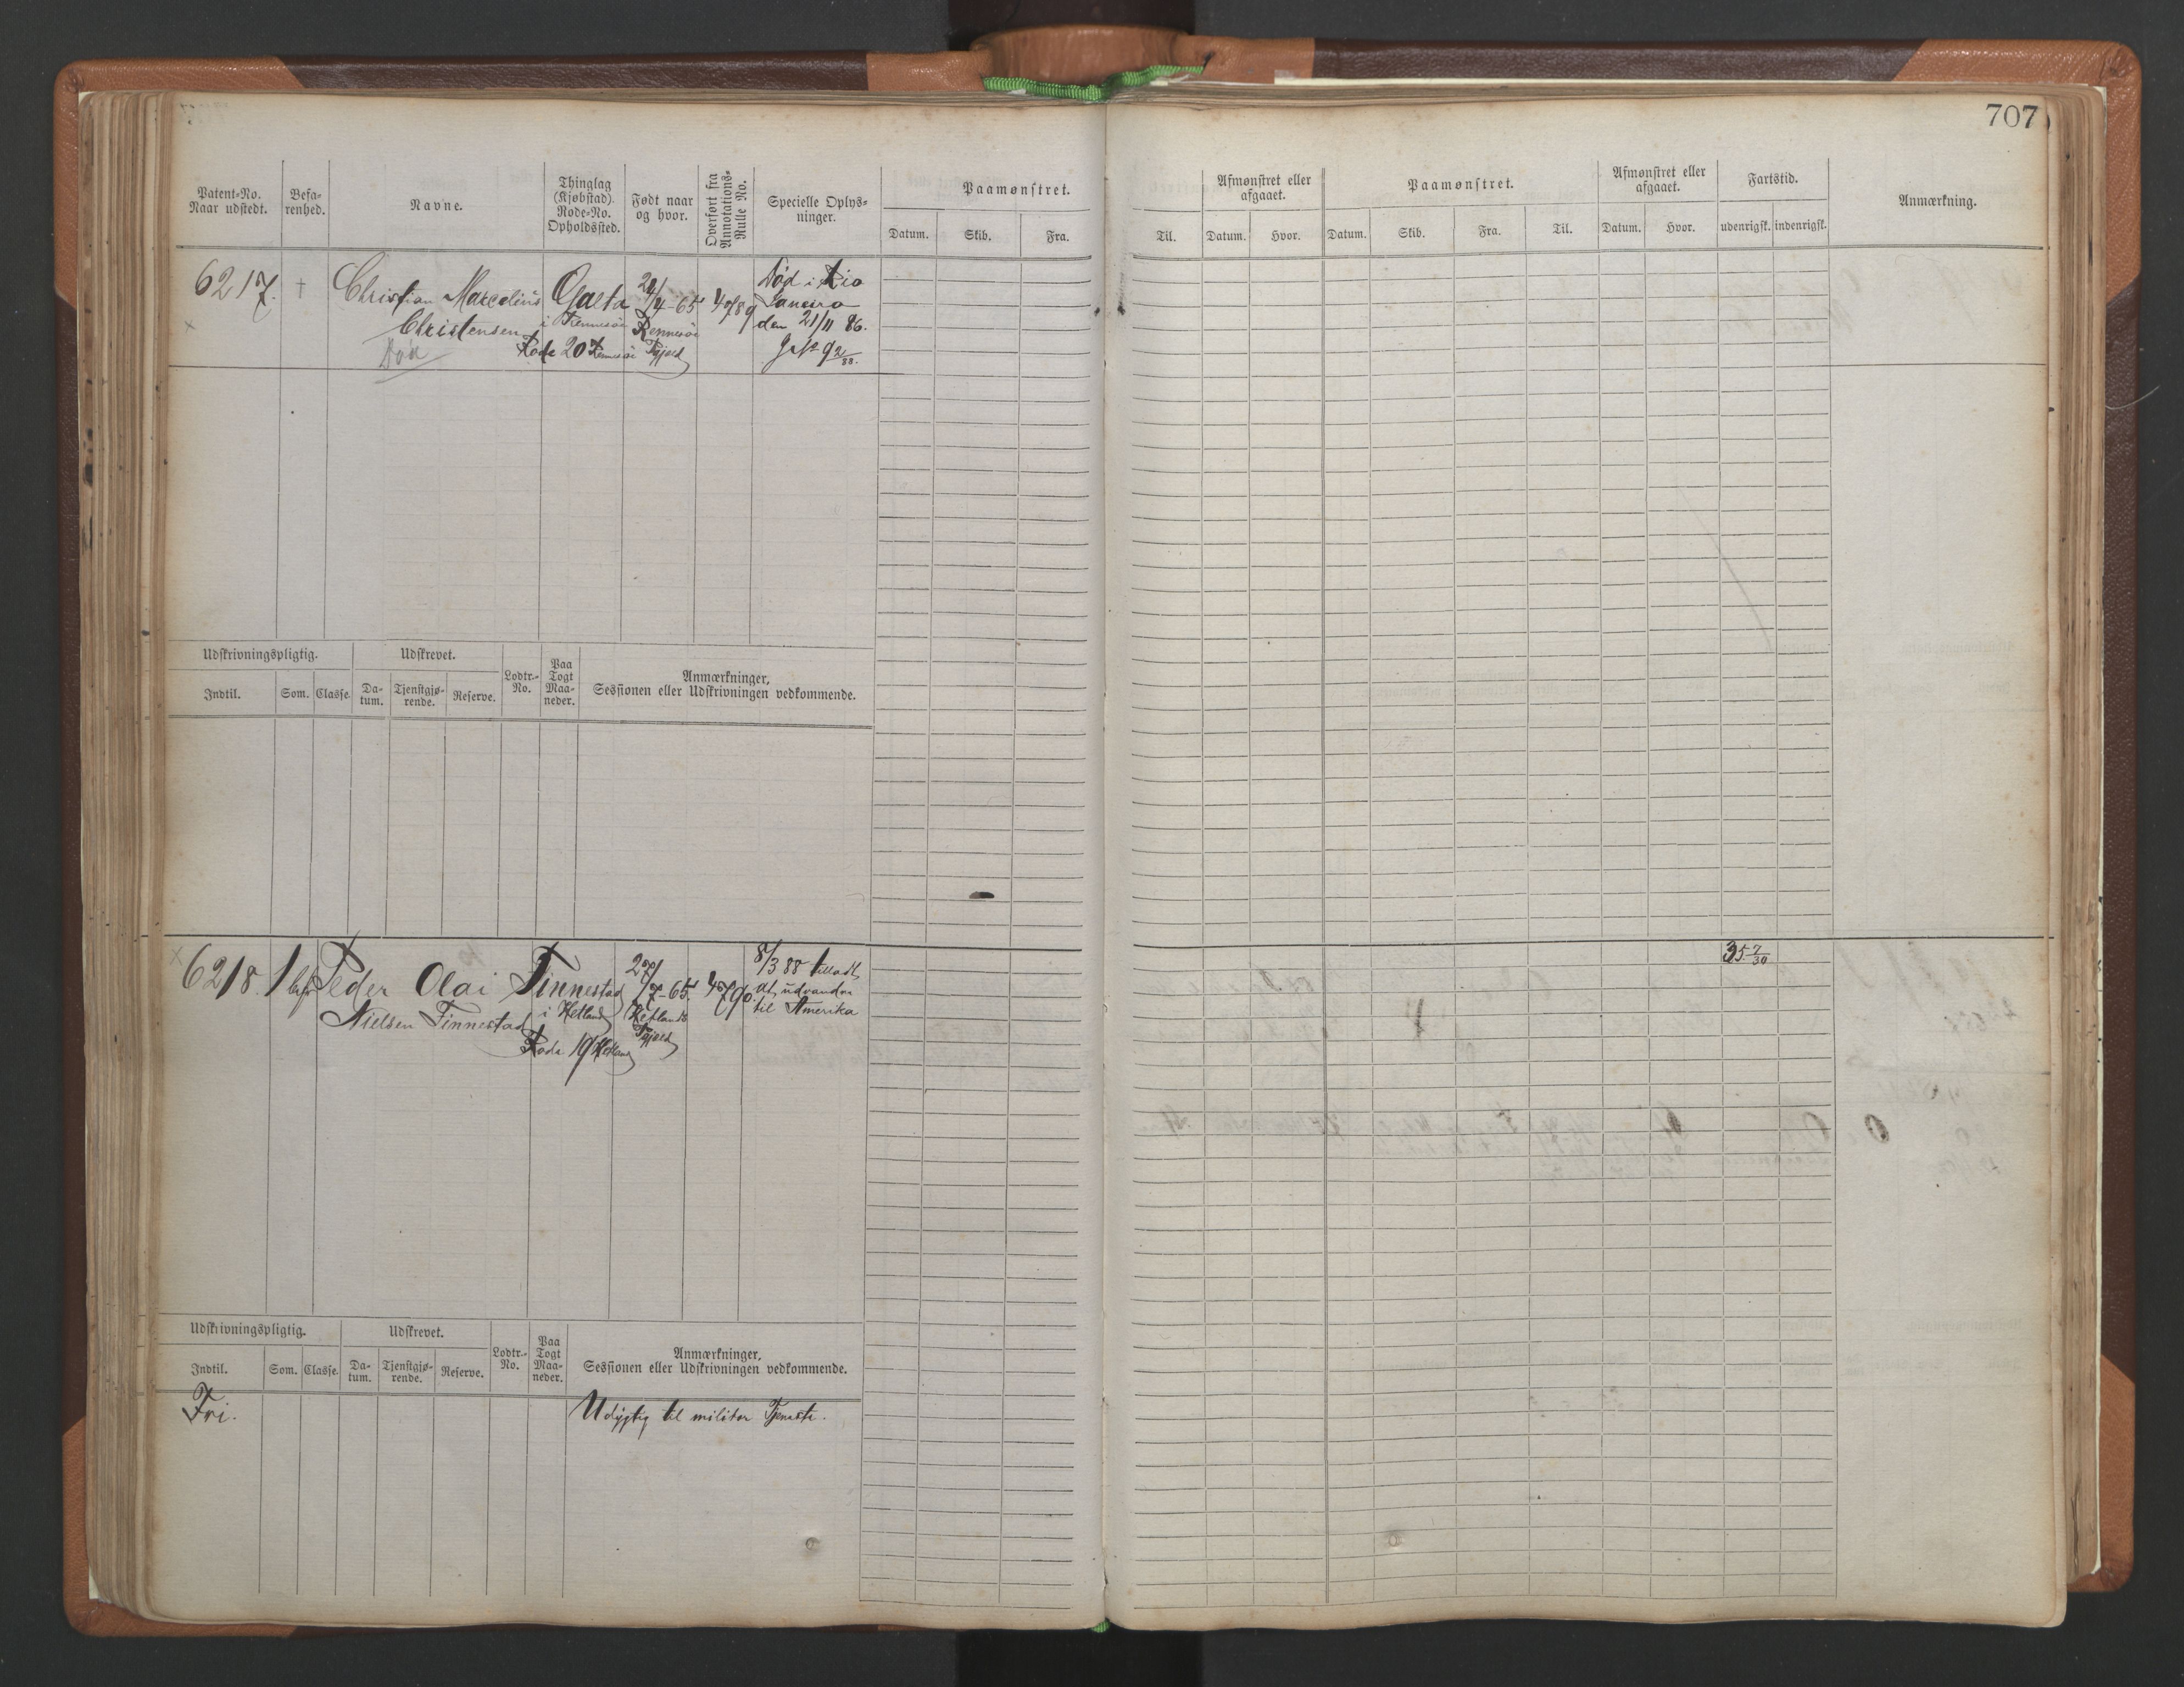 707
Patent-No.
Naar udstedt.
Befa-
renhed.
Navne.
Thinglag
(Kjøbstad).
Rode-No.
Opholdssted.
Født naar
og hvor.
Overført fra
Annotations-
Rulle No.
Specielle Oplys-
ninger.
Paamønstret.
Datum. Skib. Fra.
Til.
Afmønstret eller
afgaaet.
Datum. Hvor.
Paamønstret.
Datum. Skib. Fra. Til.
Afmønstret eller
afgaaet.
Datum. Hvor.
Fartstid.
udenrigsk. indenrigsk.
Anmærkning.
6217.
Christian Marcelius
Christensen
Død
i Rennesöe
Rode 20 Rennesöe
24/4-65
Rennesöe
Pgjæld
4789
Død i Rio
Janeiro
den 21/11 86.
Udskrivningspligtig.
Indtil. Som. Classe.
Udskrevet.
Da-
tum.
Tjenstgjø-
rende.
Reserve.
Lodtr.-
No.
Paa
Togt
Maa-
neder.
Anmærkninger,
Sessionen eller Udskrivningen vedkommende.
6218.
1 bef.
Peder Olai
Nielsen Finnestad
Finnestad
i Hetland
Rode 19 Hetland
27/7-65.
Hetlands
Pgjæld
4790.
8/3 88 tilladt
at udvandre
til Amerika
35 7/30
Udskrivningspligtig.
Indtil. Som. Classe.
Udskrevet.
Da-
tum.
Tjenstgjø-
rende.
Reserve.
Lodtr.-
No.
Paa
Togt
Maa-
neder.
Anmærkninger,
Sessionen eller Udskrivningen vedkommende.
Fri.
Udygtig til militær Tjeneste.